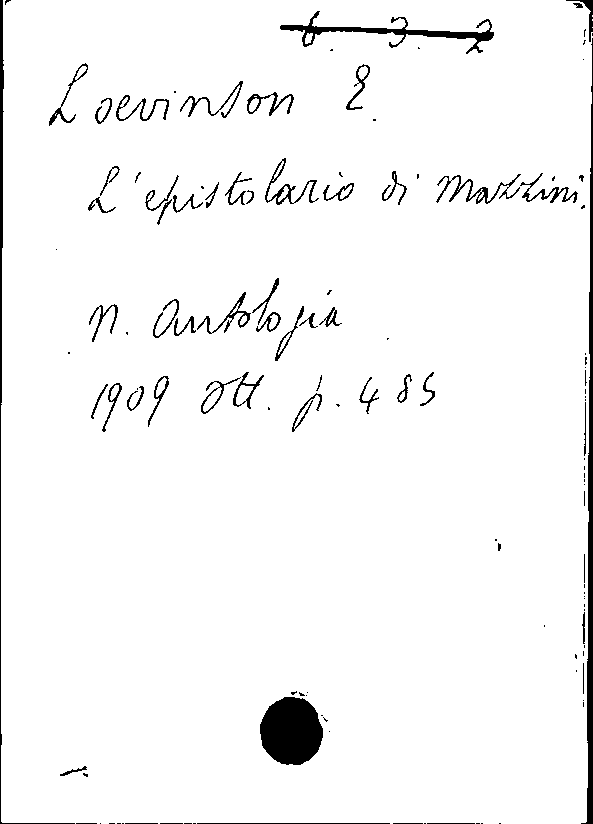 6. 3. 2
Loevinson E.
L'epistolario di Mazzini.
N. Antologia
1909 Ott. p. 485